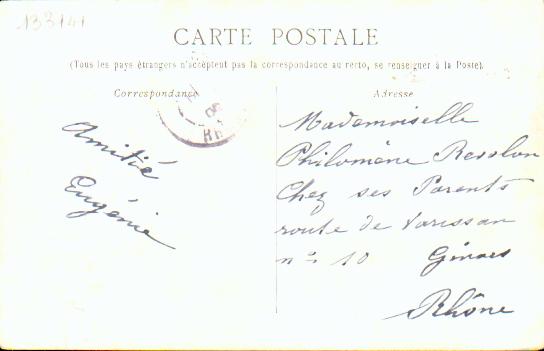 133141
CARTE POSTALE
(Tous les pays étrangers n'acceptent pas la correspondance au recto, se renseigner à la Poste).
Correspondance
Adresse
Amitié
Eugénie
Mademoiselle
Philomène
Chez ses Parents
route de
n° 10
Rhône